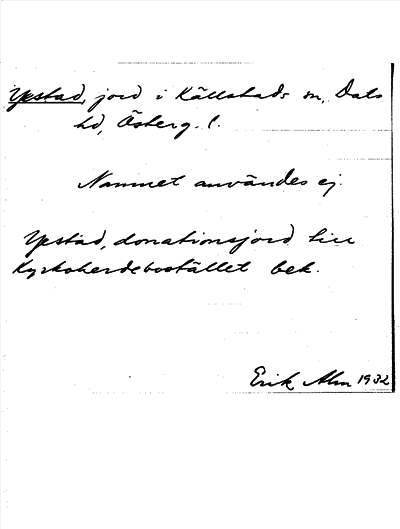 Ypstad, jord i Källstads sn, Dals
hd, Österg. l.
Namnet användes ej.
Ypstad, donationsjord till
Kyrkoherdebostället bek.
Erik Alm 1932